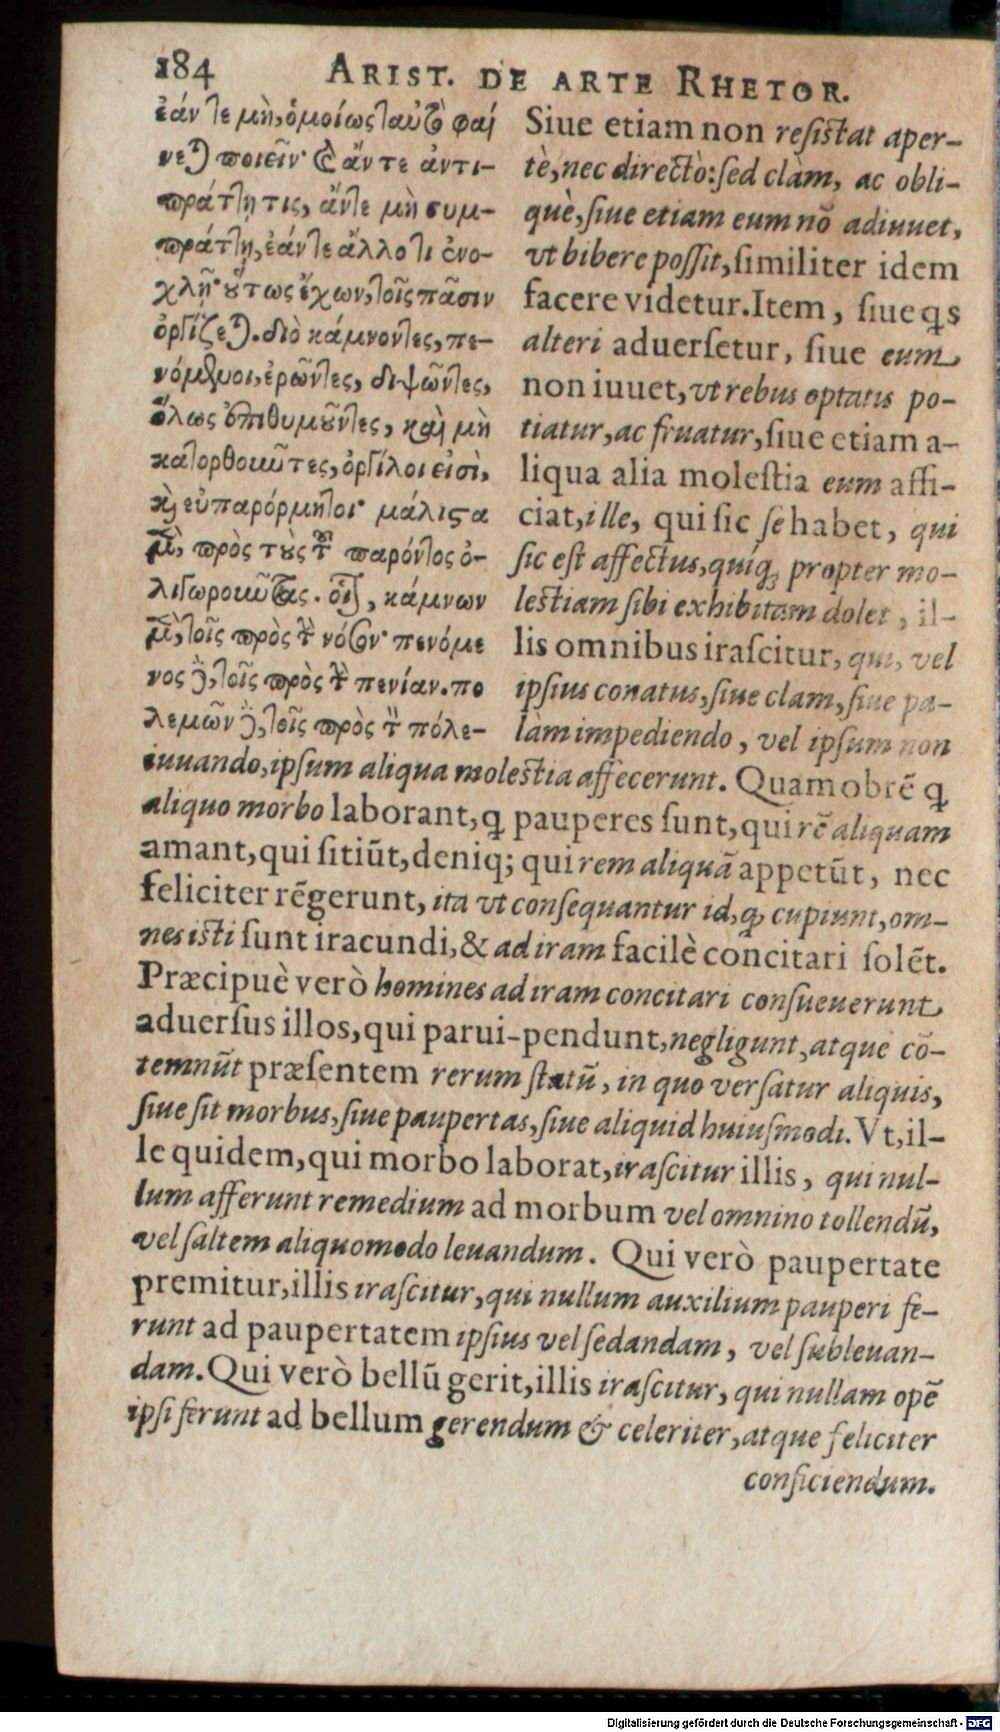 184 ARIST. DE ARTE RHETOR.
ἐάν τε μὴ, ὁμοίως ταὐτὸ φαί
νεται ποιεῖν· καὶ ἄν τε ἀντι-
πράττῃ τις, ἄντε μὴ συμ-
πράττῃ, ἐάντε ἄλλο τι ἐνο-
χλῇ· οὕτως ἔχων, τοῖς πᾶσιν
ὀργίζεται. διὸ κάμνοντες, πε-
νόμενοι, ἐρῶντες, διψῶντες,
ὅλως ἐπιθυμοῦντες, καὶ μὴ
κατορθοῦντες, ὀργίλοι εἰσὶ,
καὶ εὐπαρόρμητοι· μάλιστα
μὲν, πρὸς τοὺς τοῦ παρόντος ὀ-
λιγωροῦντας. οἷον, κάμνων
μὲν, τοῖς πρὸς τὴν νόσον· πενόμε
νος δὲ, τοῖς πρὸς τὴν πενίαν. πο
λεμῶν δὲ, τοῖς πρὸς τὸν πόλε-
Siue etiam non resistat aper-
tè, nec directò: sed clàm, ac obli-
què, siue etiam eum nõ adiuuet,
vt bibere possit, similiter idem
facere videtur. Item, siue qs
alteri aduersetur, siue eum
non iuuet, vt rebus optatis po-
tiatur, ac fruatur, siue etiam a-
liqua alia molestia eum affi-
ciat, ille, qui sic se habet, qui
sic est affectus, quíq; propter mo-
lestiam sibi exhibitam dolet, il-
lis omnibus irascitur, qui, vel
ipsius conatus, siue clam, siue pa-
làm impediendo, vel ipsum non
iuuando, ipsum aliqua molestia affecerunt. Quamobrẽ q
aliquo morbo laborant, q pauperes sunt, qui rẽ aliquam
amant, qui sitiũt, deniq; qui rem aliquã appetũt, nec
feliciter rẽ gerunt, ita vt consequantur id, qꝫ cupiunt, om-
nes isti sunt iracundi, & ad iram facilè concitari solẽt.
Præcipuè verò homines ad iram concitari consueuerunt
aduersus illos, qui parui-pendunt, negligunt, atque cõ-
temnũt præsentem rerum statũ, in quo versatur aliquis,
siue sit morbus, siue paupertas, siue aliquid huiusmodi. Vt, il-
le quidem, qui morbo laborat, irascitur illis, qui nul-
lum afferunt remedium ad morbum vel omnino tollendũ,
vel saltem aliquomodo leuandum. Qui verò paupertate
premitur, illis irascitur, qui nullum auxilium pauperi fe-
runt ad paupertatem ipsius vel sedandam, vel subleuan-
dam. Qui verò bellũ gerit, illis irascitur, qui nullam opẽ
ipsi ferunt ad bellum gerendum & celeriter, atque feliciter
conficiendum.
Digitalisierung gefördert durch die Deutsche Forschungsgemeinschaft - DFG